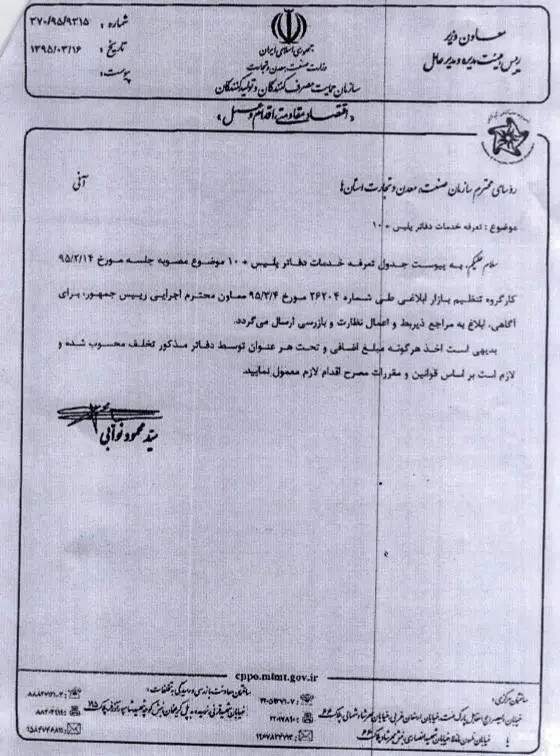 معاون وزیر
رییس هیئت مدیره و مدیر عامل
جمهوری اسلامی ایران
وزارت صنعت، معدن و تجارت
سازمان حمایت مصرف کنندگان و تولیدکنندگان
شماره : ۳۷۰/۹۵/۹۳۱۵
تاریخ : ۱۳۹۵/۰۳/۱۶
پیوست:
«اقتصاد مقاومتی؛ اقدام و عمل»
آنی
رؤسای محترم سازمان صنعت، معدن و تجارت استان ها
موضوع : تعرفه خدمات دفاتر پلیس + ۱۰
سلام علیکم، به پیوست جدول تعرفه خدمات دفاتر پلیس + ۱۰ موضوع مصوبه جلسه مورخ ۹۵/۲/۱۴
کارگروه تنظیم بازار ابلاغی طی شماره ۲۶۲۰۴ مورخ ۹۵/۳/۴ معاون محترم اجرایی رییس جمهور، برای
آگاهی، ابلاغ به مراجع ذیربط و اعمال نظارت و بازرسی ارسال می‌گردد.
بدیهی است اخذ هرگونه مبلغ اضافی و تحت هر عنوان توسط دفاتر مذکور تخلف محسوب شده و
لازم است بر اساس قوانین و مقررات مصرح اقدام لازم معمول نمایید.
سید محمود نوابی
cppo.mimt.gov.ir
ساختمان مرکزی:
ساختمان معاونت بازرسی و رسیدگی به تخلفات: